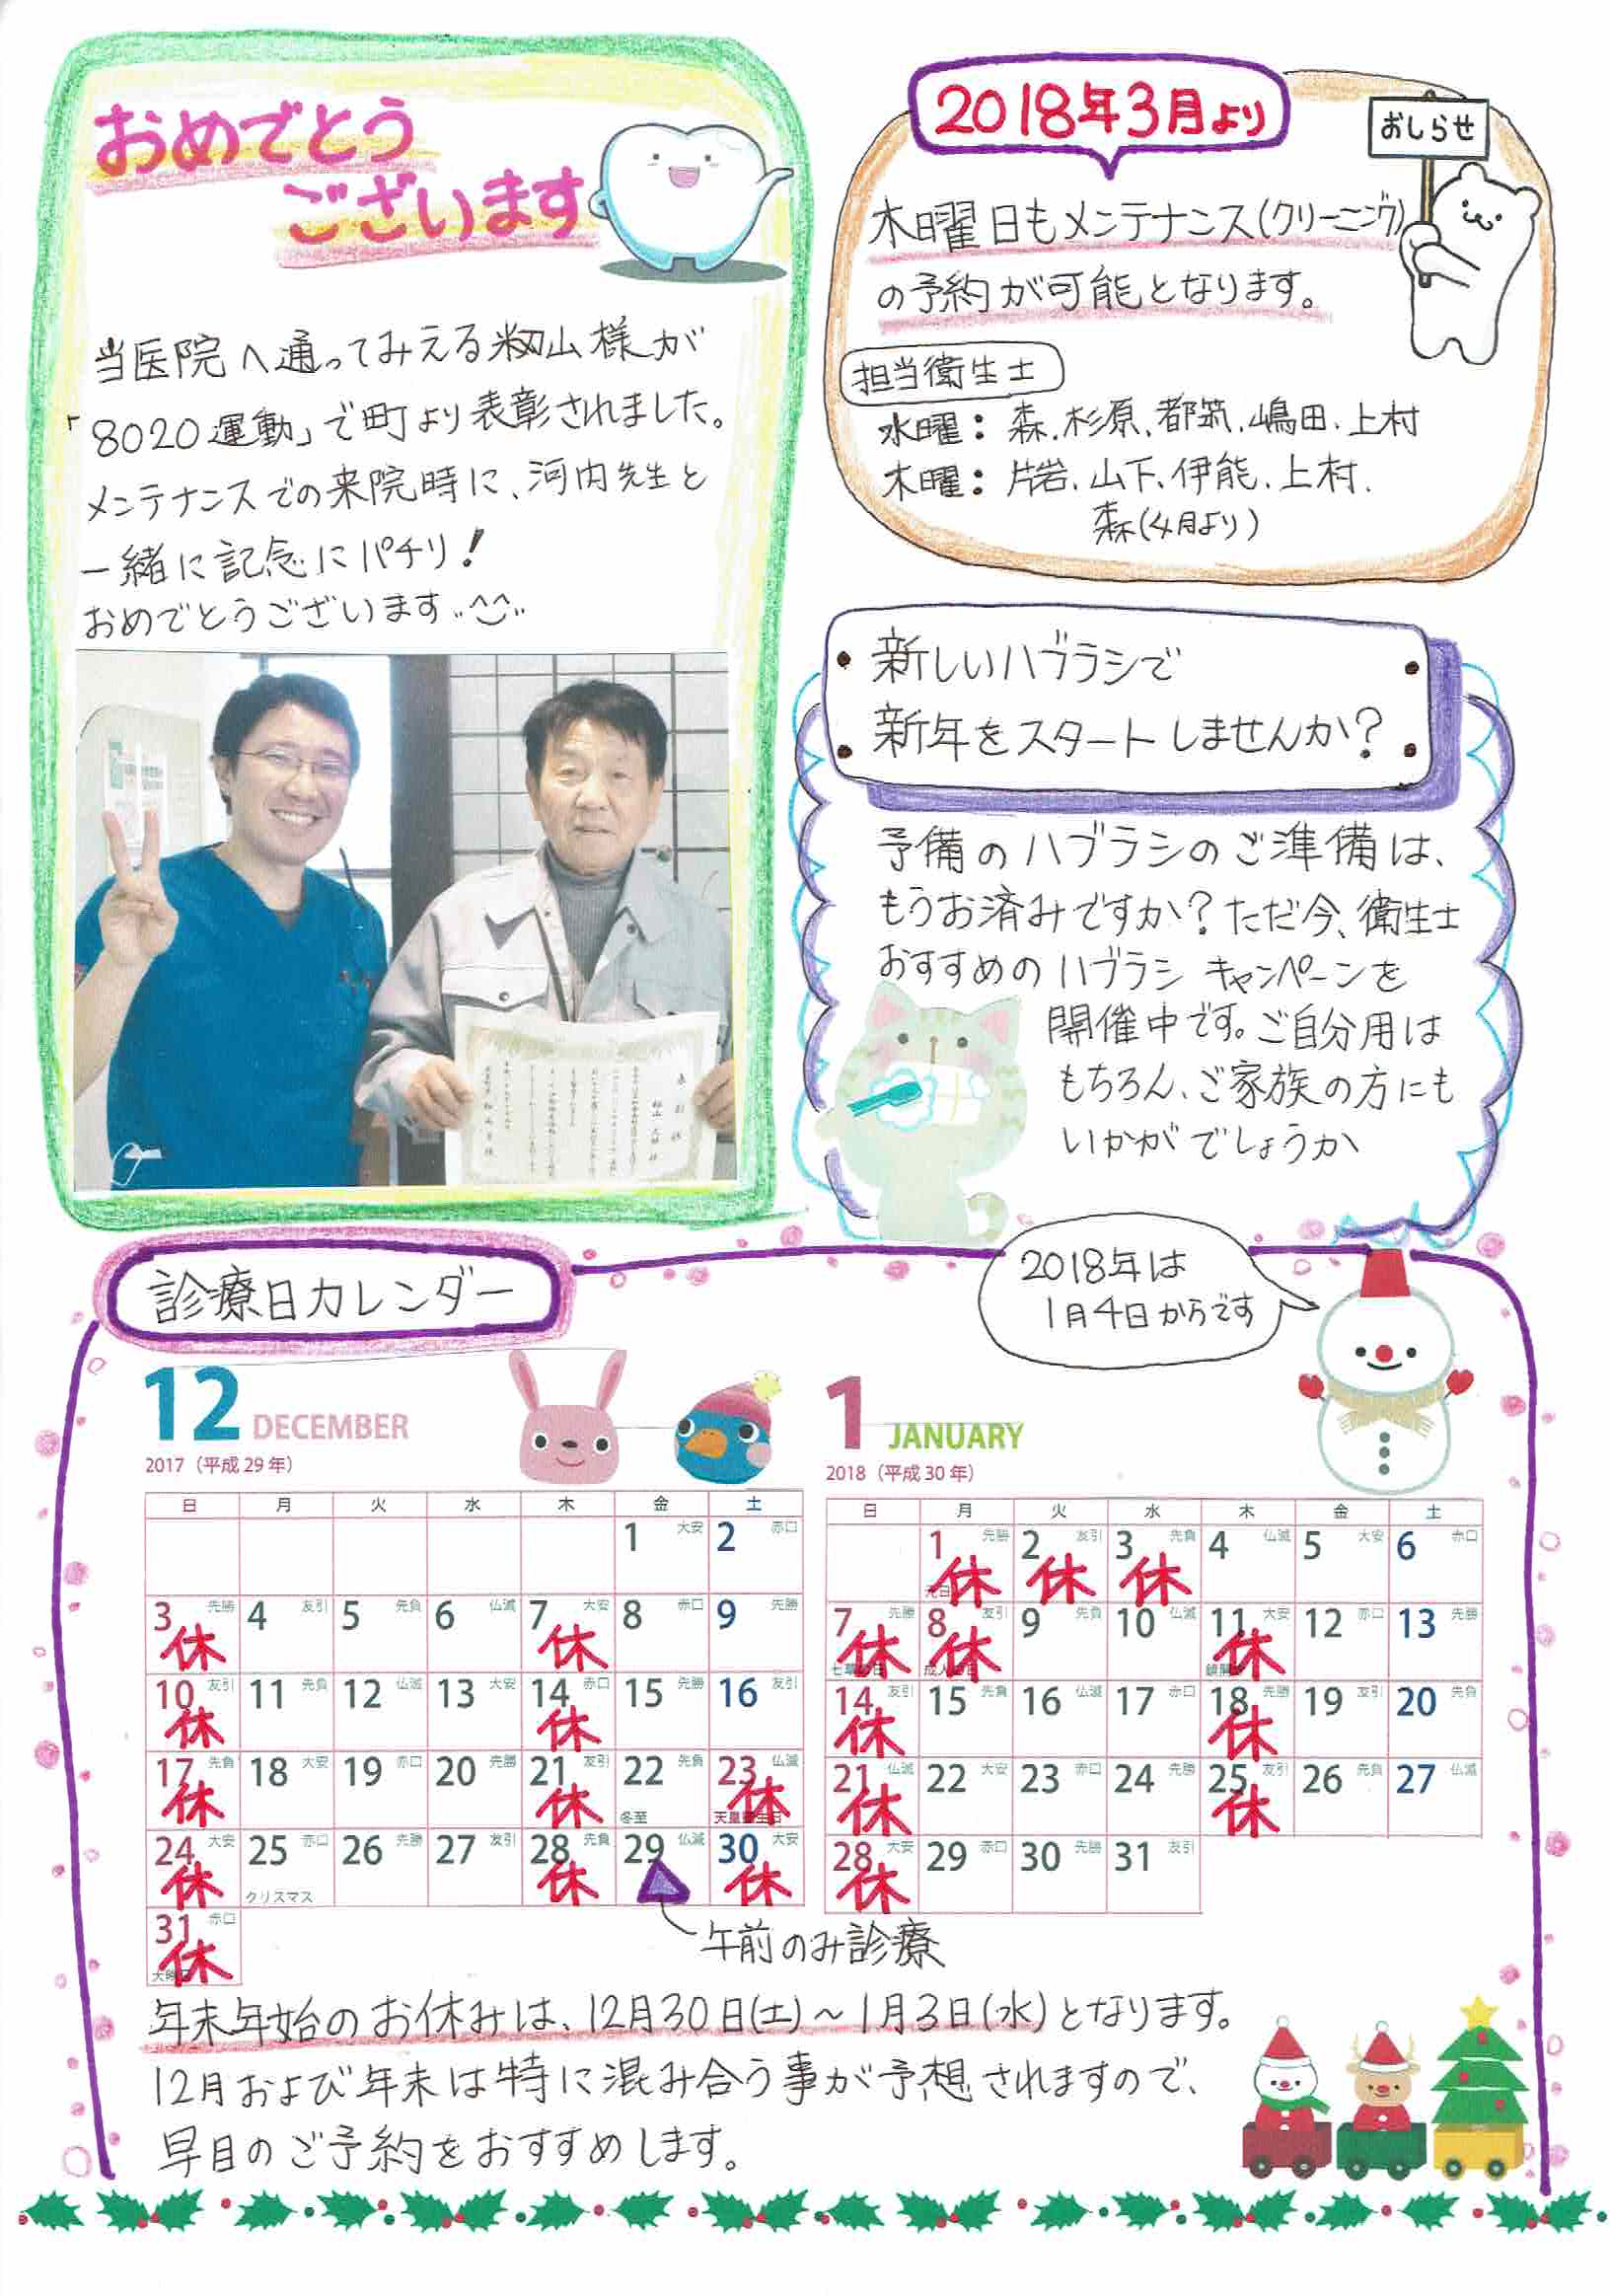 おめでとう
ございます
当医院へ通ってみえる籾山様が
「8020運動」で町より表彰されました。
メンテナンスでの来院時に、河内先生と
一緒に記念にパチリ!
おめでとうございます
2018年3月より
おしらせ
木曜日もメンテナンス(クリーニング)
の予約が可能となります。
担当衛生士
水曜:森.杉原.都筑.嶋田.上村
木曜:片岩.山下.伊能.上村.
森(4月より)
新しいハブラシで
新年をスタートしませんか?
予備のハブラシのご準備は、
もうお済みですか?ただ今、衛生士
おすすめのハブラシ キャンペーンを
開催中です。ご自分用は
もちろん、ご家族の方にも
いかがでしょうか
診療日カレンダー
2018年は
1月4日からです
12 DECEMBER
2017(平成29年)
日 月 火 水 木 金 土
1 大安 2 赤口
3 先勝 休 4 友引 5 先負 6 仏滅 7 大安 休 8 赤口 9 先勝
10 友引 休 11 先負 12 仏滅 13 大安 14 赤口 休 15 先勝 16 友引
17 先負 休 18 大安 19 赤口 20 先勝 21 友引 休 22 先負 冬至 23 仏滅 休 天皇誕生日
24 大安 休 25 赤口 クリスマス 26 先勝 27 友引 28 先負 休 29 仏滅 30 大安 休
31 赤口 休
午前のみ診療
1 JANUARY
2018(平成30年)
日 月 火 水 木 金 土
1 先勝 休 元日 2 友引 休 3 先負 休 4 仏滅 5 大安 6 赤口
7 先勝 休 8 友引 休 9 先負 10 仏滅 11 大安 休 12 赤口 13 先勝
14 友引 休 15 先負 16 仏滅 17 赤口 18 先勝 休 19 友引 20 先負
21 仏滅 休 22 大安 23 赤口 24 先勝 25 友引 休 26 先負 27 仏滅
28 大安 休 29 赤口 30 先勝 31 友引
年末年始のお休みは、12月30日(土)~1月3日(水)となります。
12月および年末は特に混み合う事が予想されますので、
早目のご予約をおすすめします。